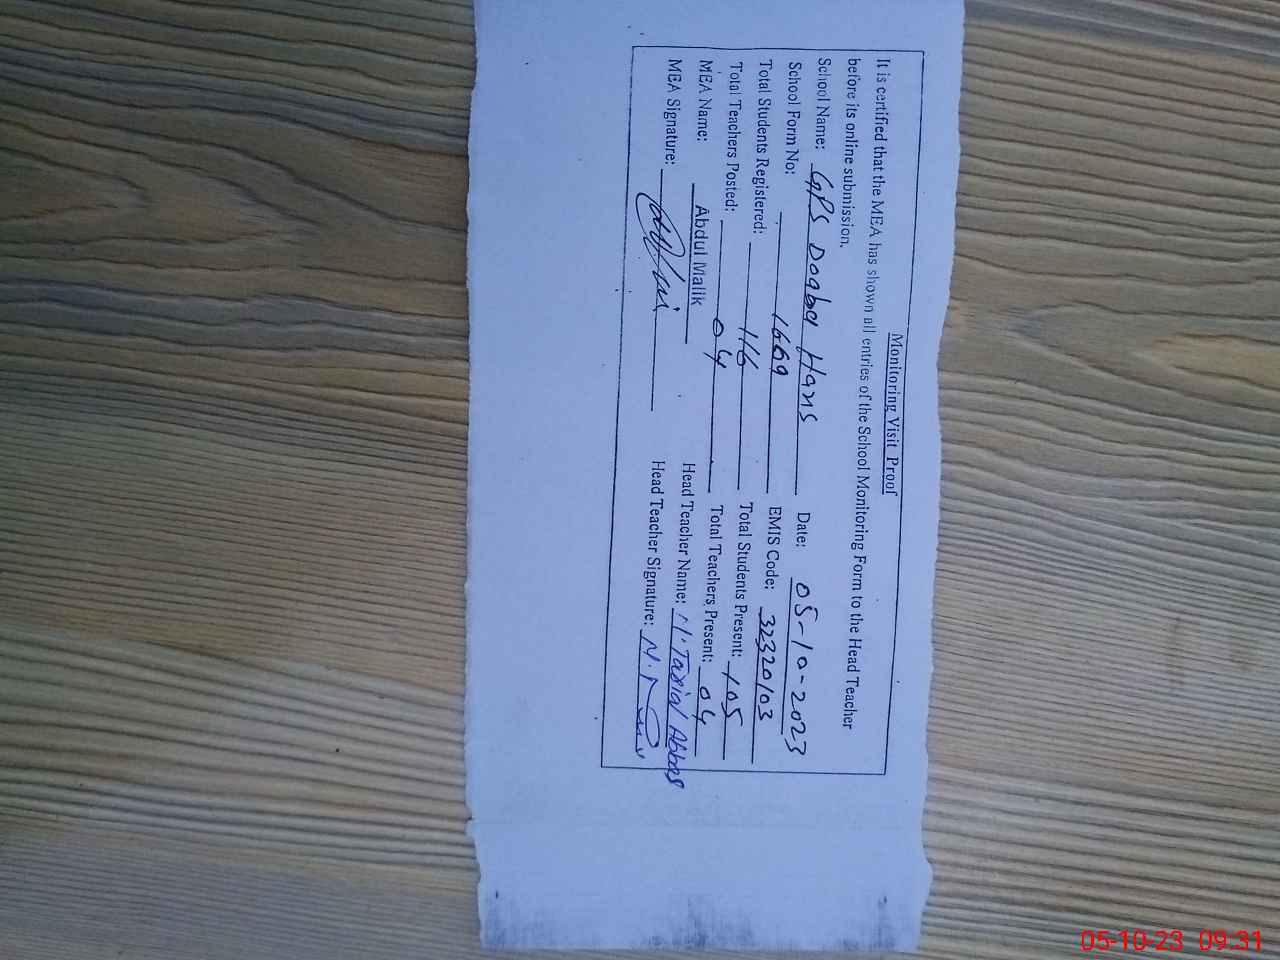 Monitoring Visit Proof
It is certified that the MEA has shown all entries of the School Monitoring Form to the Head Teacher
before its online submission.
School Name: GPS Doaba Hans Date: 05-10-2023
School Form No: 1669 EMIS Code: 32320103
Total Students Registered: 116 Total Students Present: 105
Total Teachers Posted: 04 Total Teachers Present: 04
MEA Name: Abdul Malik Head Teacher Name: Abbas
MEA Signature: Head Teacher Signature:
05-10-23 09:31